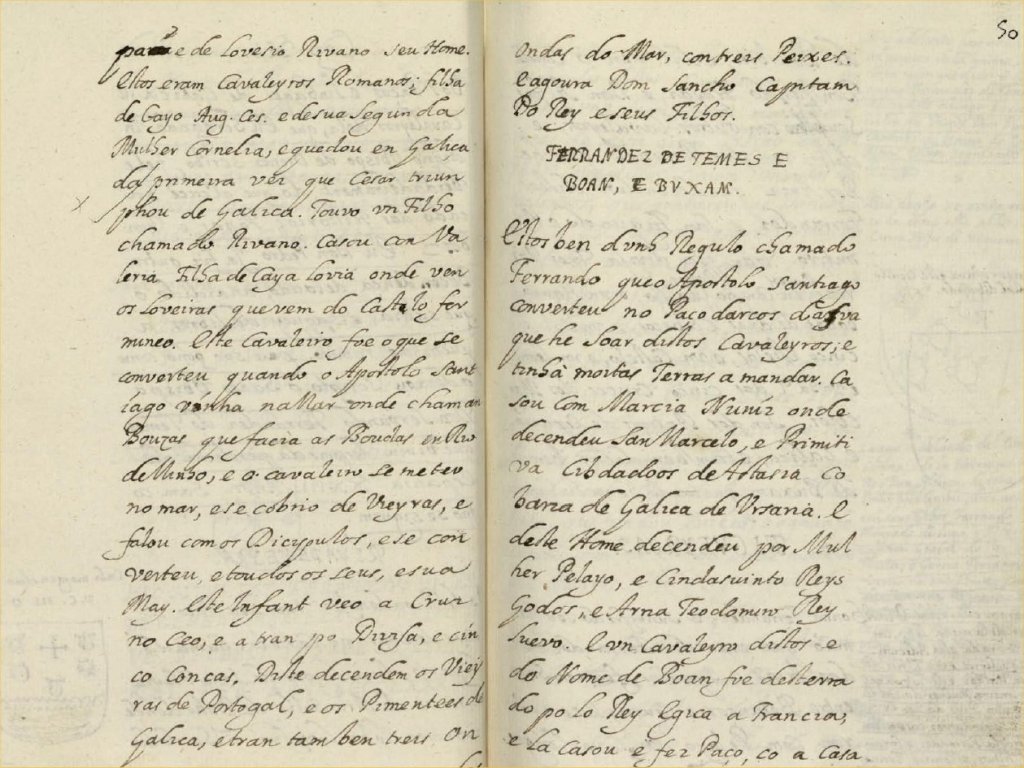 e de Lovesio Rivano seu Home.
Estos eram Cavaleyros Romanos; filha
de Gayo Aug. Ces. e desua Segunda
Mulher Cornelia, e quedou en Galica
da primeira vez que Cesar triun
phou de Galica. Touvo vn Filho
chamado Rivano. Casou con Va
leria Filha de Caya Lovia onde ven
os Loveiras que vem do Castelo fer
mineo. Este Cavaleiro foe o que se
converteu quando o Apostolo Sant
iago vinha na Mar onde chaman
Bouzas que facia as Boudas en Rio
de Minho, e o cavaleiro se meteu
no mar, e se cobrio de Vieyras, e
falou com os Dicipulos, e se con
verteu, e toudos os seus, e sua
May. Este Infant veo a Cruz
no Ceo, e a tran po Divisa, e cin
co Concas. Diste decendem os Viey
ras de Portogal, e os Pimentees de
Galica, e tran tam ben treis On
50
Ondas do Mar, con treis Peixes.
E agoura Dom Sancho Capitam
Do Rey e seus Filhos.
FERRANDEZ DE TEMES E
BOAN, E BVXAM.
Estos ben dunh Regulo chamado
Ferrando que o Apostolo Santiago
converteu no Paço darcos
que he Soar distos Cavaleyros; e
tinha moitas Terras a mandar. Ca
sou Com Marcia Nuniz onde
decendeu San Marcelo, e Primiti
va Cibdadoos de Astasia co
barza de Galica de Vrsaria. E
deste Home decendeu por Mul
her Pelayo, e Cindasuinto Reys
Godos, e Arna Teodomiro Rey
Suevo. E vn Cavaleyro distos e
do Nome de Boan fue desterra
do po lo Rey Egica a Francia,
e la Casou e fez Paço, co a Casa